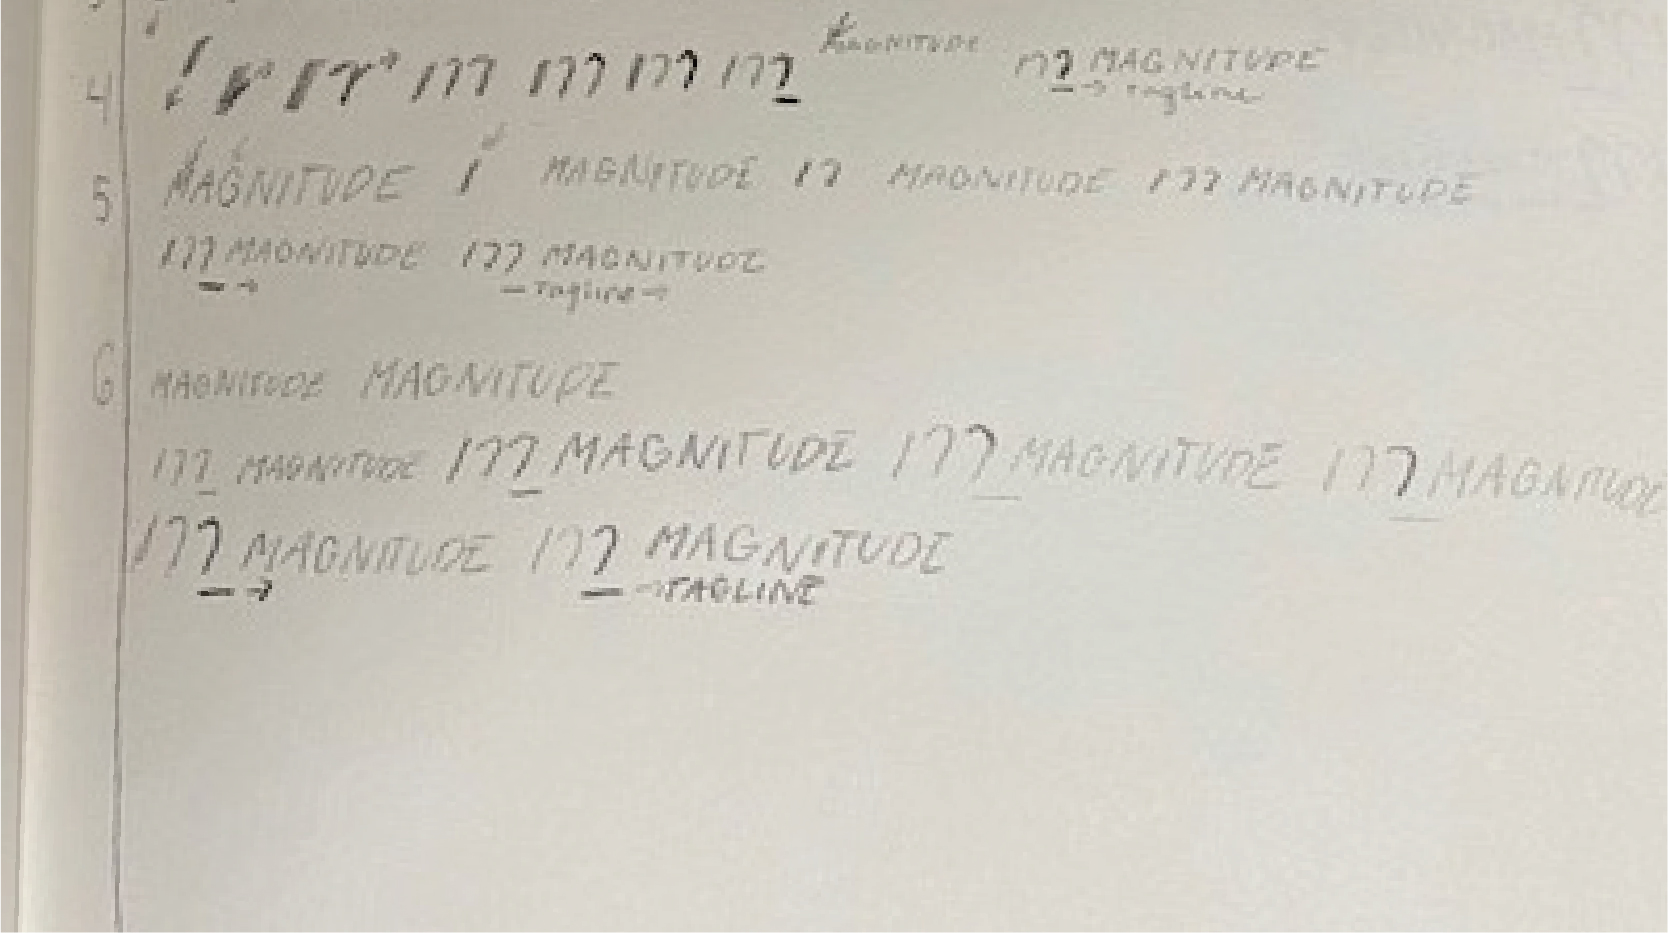 4 m m m m MAGNITUDE m MAGNITUDE
→ Tagline
5 MAGNITUDE MAGNITUDE MAGNITUDE m MAGNITUDE
m MAGNITUDE m MAGNITUDE
— → — Tagline →
6 MAGNITUDE MAGNITUDE
m MAGNITUDE m MAGNITUDE m MAGNITUDE m MAGNITUDE
m MAGNITUDE m MAGNITUDE
— → — → TAGLINE